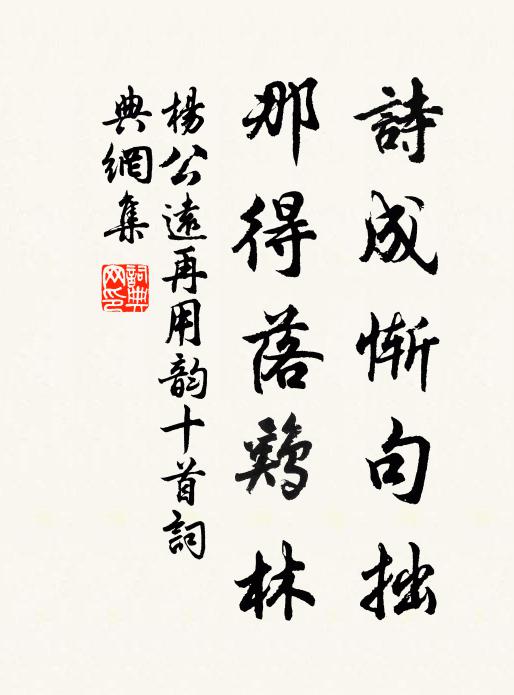 詩成惭句拙
那得落鷄林
楊公遠再用韵十首詞
典網集
詞典网印